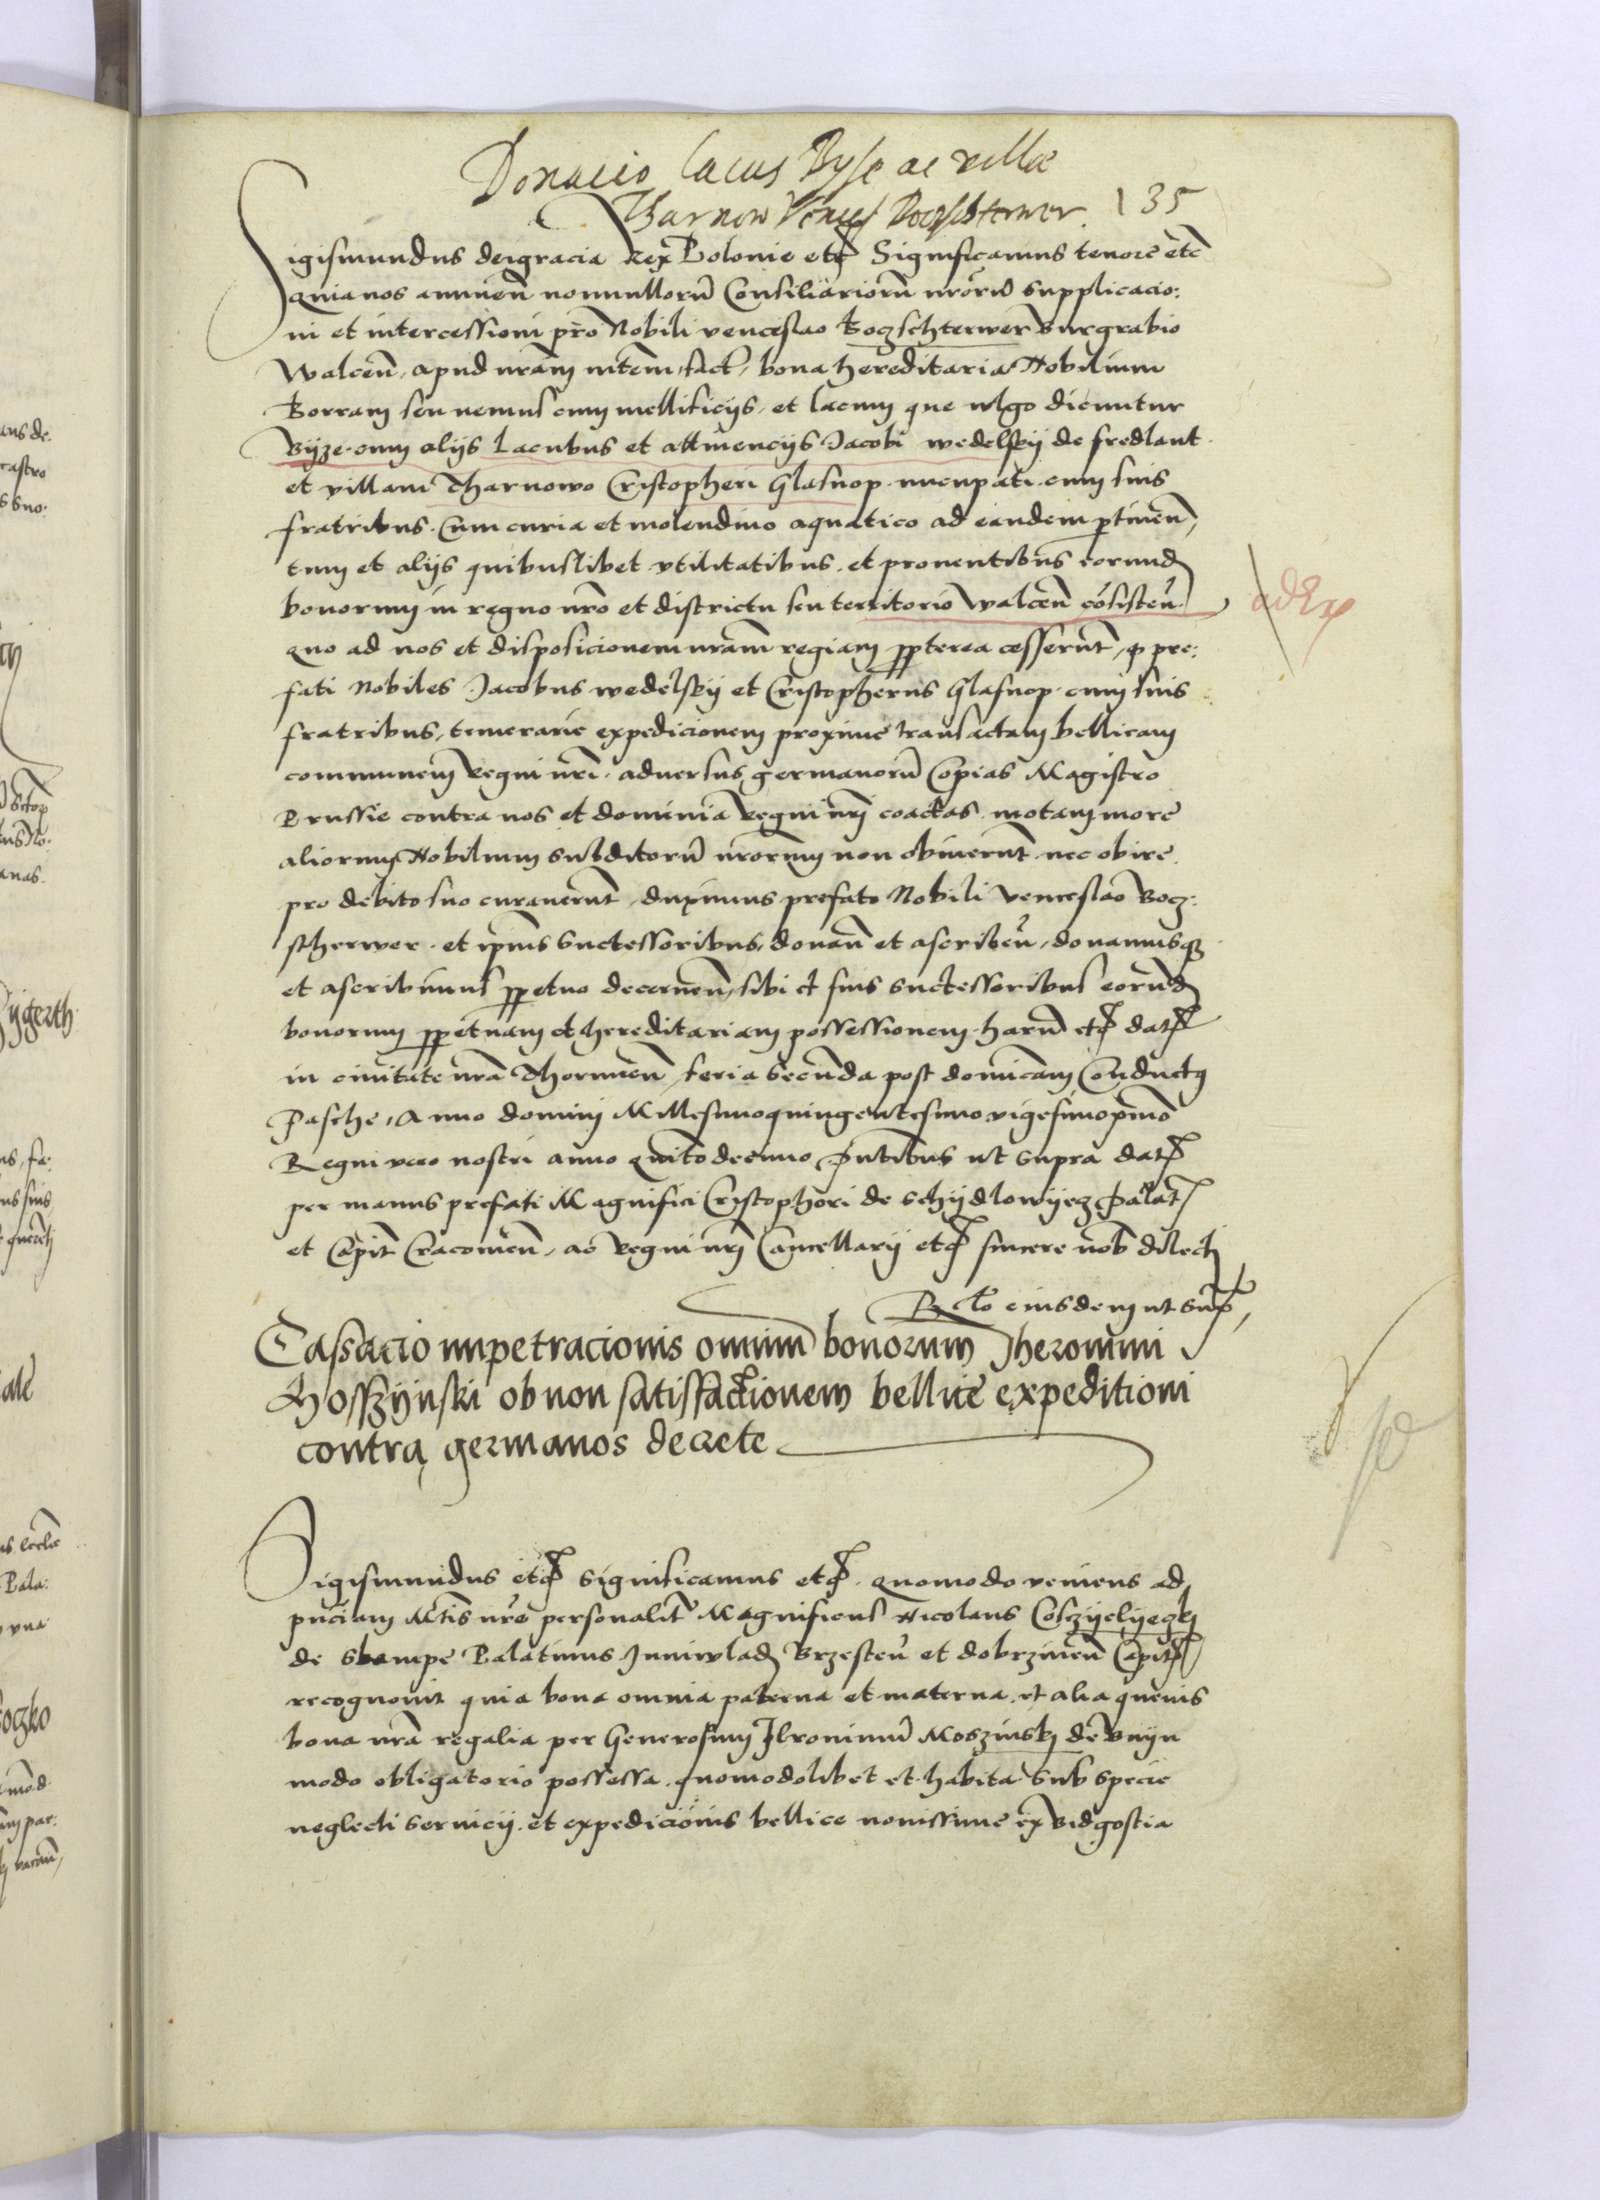 Donacio lacus Byse ac villæ
Tharnow Vencesl Boczschterwer 135
Sigismundus dei gracia Rex Polonie etc Significamus tenore etc
quia nos annuen nonnullorũ Consiliariorũ nrorũ supplicacio:
ni et intercessioni pro Nobili venceslao Boczschterwer Burgrabio
Walcen̄, apud nram mtem fact, bona hereditaria Nobilium
Borram seu nemus cum mellificijs, et lacum que ulgo dicuntur
Byze cum alijs Lacubus et attinencijs Jacobi wedelsky de fredlant
et villam Tharnowo Cristopheri Glasnop nuncupati cum suis
fratribus. Cum curia et molendino aquatico ad eandem ptinen̄,
tum et alijs quibuslibet vtilitatibus. et prouentibus eorund
bonorum in regno nro et districtu seu territorio Walcen̄ cōsisten̄.
quo ad nos et disposicionem nram regiam ppterea cesserunt, q pre:
fati Nobiles Jacobus wedelsky et Cristopherus Glasnop cum suis
fratribus, temerarie expedicionem proxime transactam bellicam
communem Regni nri. aduersus germanorũ Copias Magistro
Prussie contra nos et dominia Regni nri coactas motam more
aliorum Nobilium Subditorũ nrorum non obiuerunt nec obire
pro debito suo curauerunt, duximus prefato Nobili Venceslao Bocz:
scherwer. et ipius Successoribus, donan̄ et ascriben̄, donamusq
et ascribimus ppetuo decernen̄, sibi et suis Successoribus eorund
bonorum ppetuam et hereditariam possessionem harũ etc dat
in ciuitate nra Thorunen̄, feria Secunda post dominicam Conductus
Pasche, Anno domini Millesimoquingentesimo vigesimopmo
Regni vero nostri anno quintodecimo Pntibus ut supra dat
per manus prefati Magnifici Cristophori de Schydlowyecz Palat
et Capit Cracouien̄, ac Regni nri Cancellarij etc sincere nob dilecti
Relto eiusdem ut sup,
ad Ex
Cassacio impetracionis omnium bonorum Jheronimi
Mosszijnski ob non satisfactionem bellice expeditioni
contra germanos decrete
Sigismundus etc Significamus etc. quomodo veniens ad
pnciam Mtis nre personalit Magnificus Nicolaus Cosczyelyeczky
de Skampe Palatinus Juniwlad Brzesten̄ et dobrzinen̄ Capit
recognouit quia bona omnia paterna et materna et alia queuis
bona nra regalia per Generosum Jeronimũ Moszinsky de Vnyn
modo obligatorio possessa quomodolibet et habita Sub specie
neglecti Seruicij. et expedicionis bellice nouissime ex Bidgostia